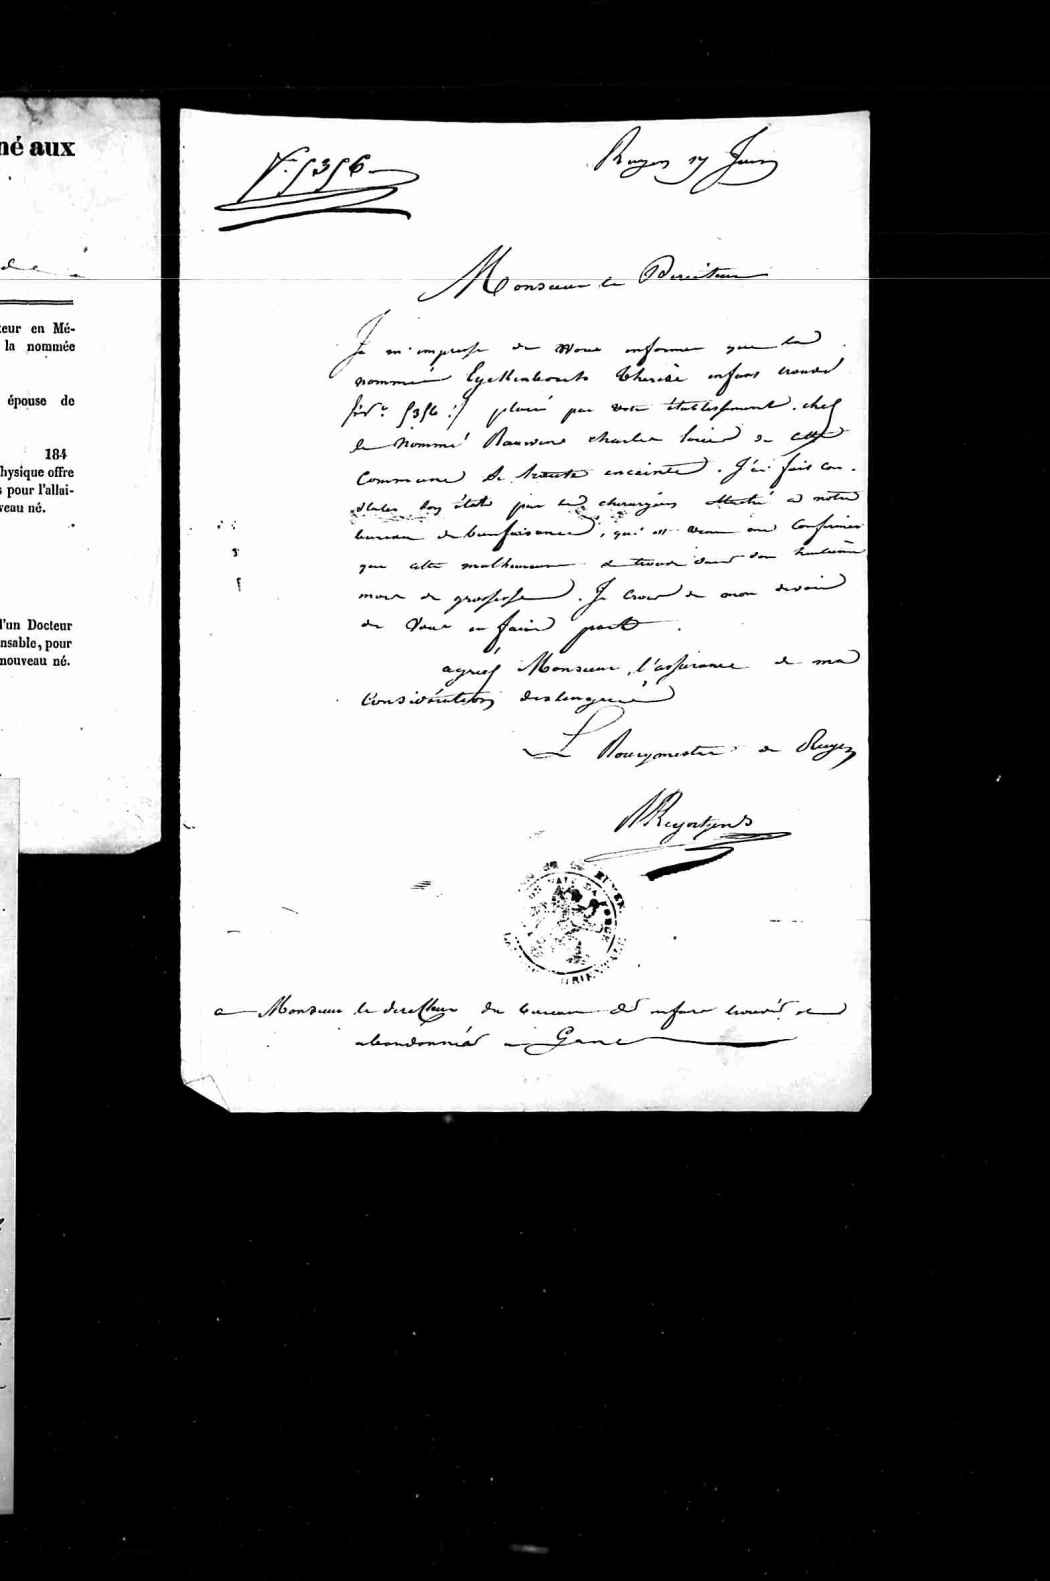 né aux
teur en Mé-
la nommée
épouse de
184
hysique offre
s pour l'allai-
veau né.
d'un Docteur
nsable, pour
nouveau né.
N° 5356
Ruyen 17 Juin
Monsieur le Directeur
Je m'empresse de vous informer que la
nommée Thérèse enfant trouvé
5356 placé par votre établissement chez
le nommé Charles de cette
Commune se trouve enceinte. J'ai fait con-
stater son état par le chirurgien attaché a notre
bureau de bienfaisance, qui est venu me Confirmer
que cette malheureuse se trouve dans son huitième
mois de grossesse. Je crois de mon devoir
de vous en faire part.
agréez Monsieur, l'assurance de ma
Considération distinguée
Le Bourgmestre de Ruyen
a Monsieur le directeur du bureau des enfans trouvés et
abandonnés a Gand